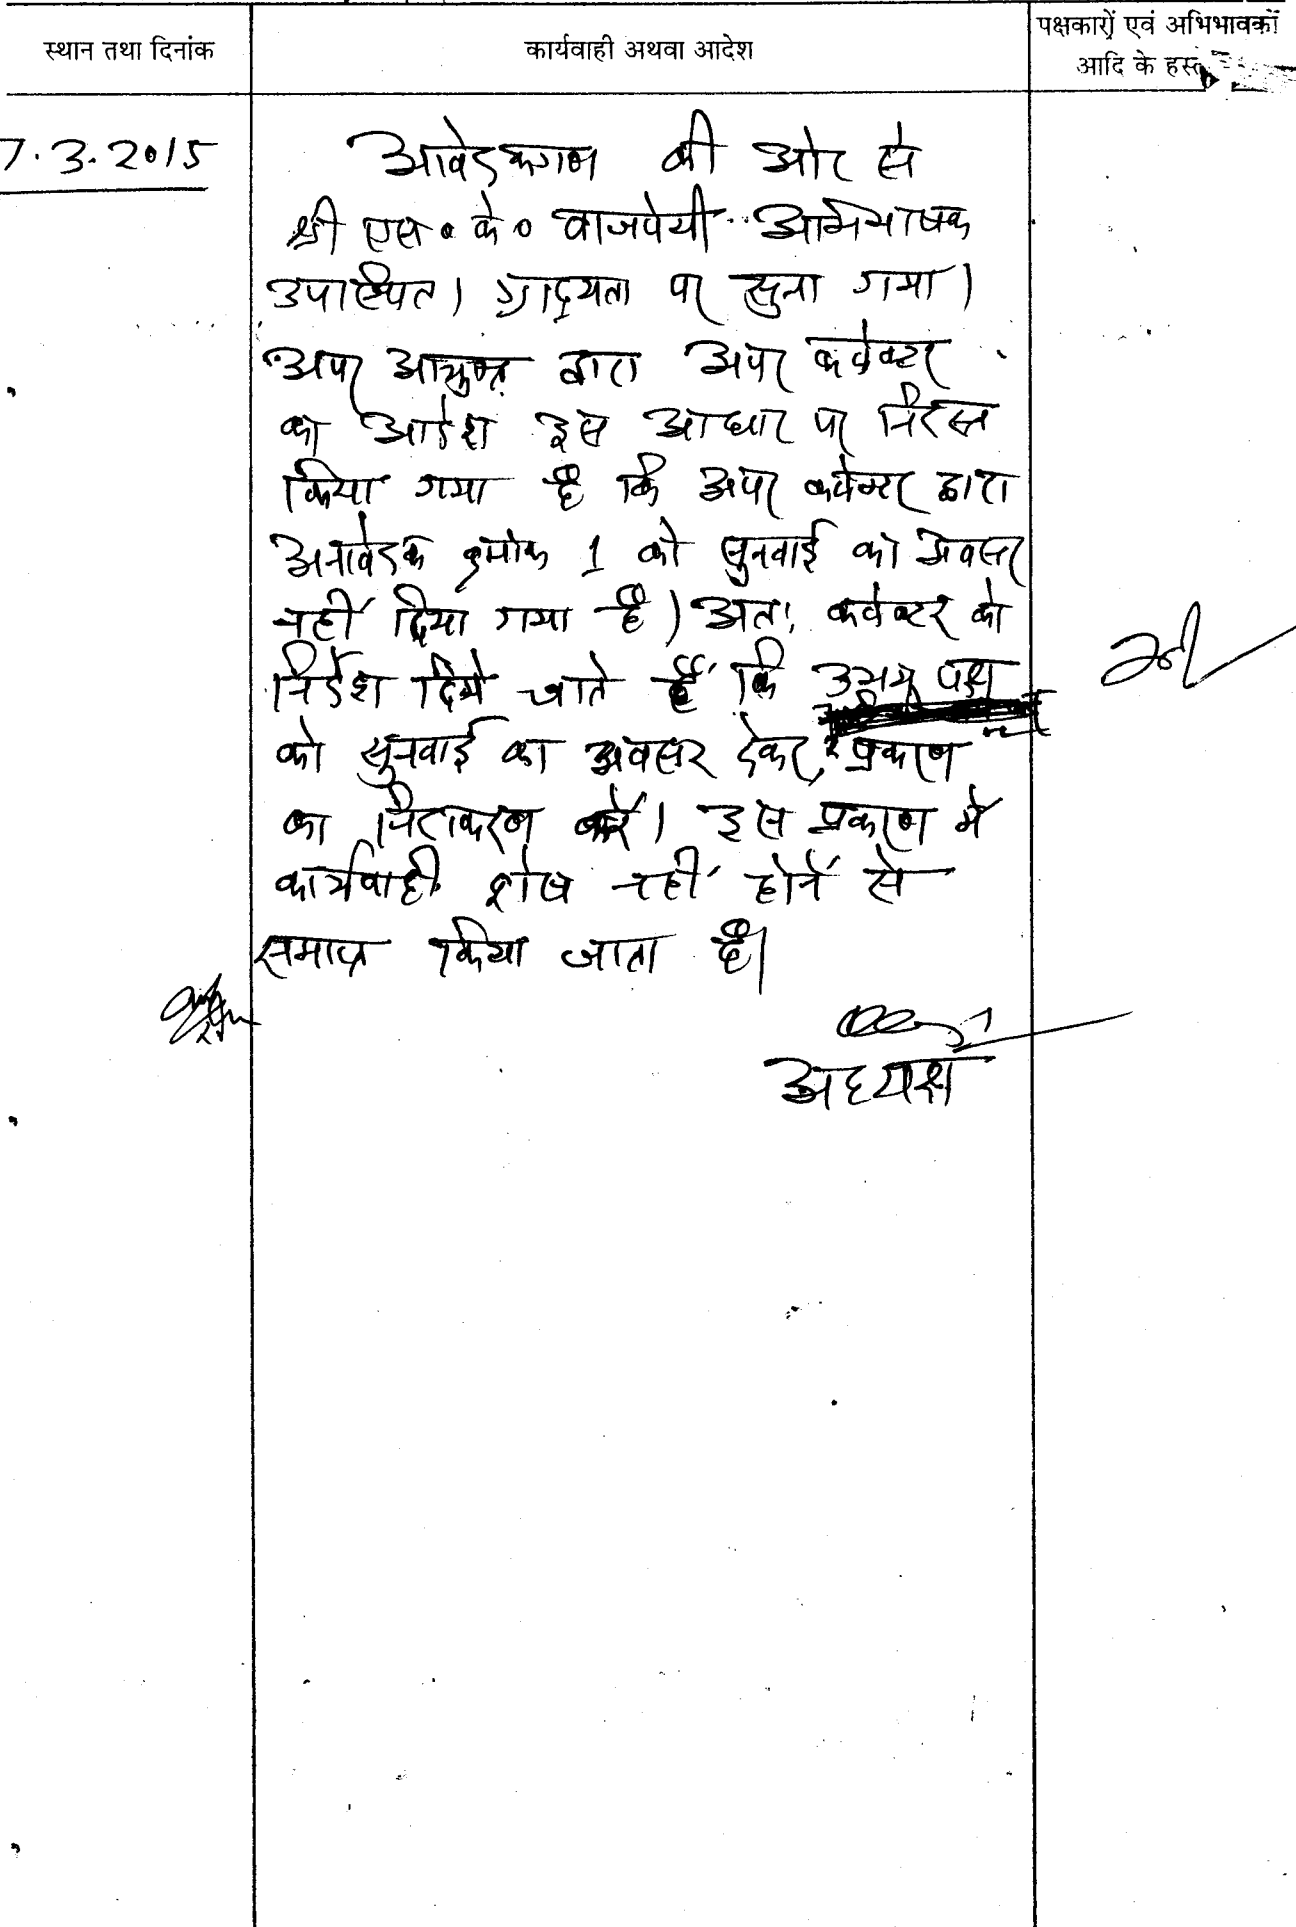 स्थान तथा दिनांक
कार्यवाही अथवा आदेश
पक्षकारों एवं अभिभावकों
आदि के हस्त
7.3.2015
आवेदकगण की ओर से
श्री एस॰ के॰ वाजपेयी अभिभाषक
उपस्थित। ग्राह्यता पर सुना गया।
अपर आयुक्त द्वारा अपर कलेक्टर
का आदेश इस आधार पर निरस्त
किया गया है कि अपर कलेक्टर द्वारा
अनावेदक क्रमांक 1 को सुनवाई का अवसर
नहीं दिया गया है। अतः कलेक्टर को
निर्देश दिये जाते हैं कि उभय पक्ष
को सुनवाई का अवसर देकर, प्रकरण
का निराकरण करें। इस प्रकरण में
कार्यवाही शेष नहीं होने से
समाप्त किया जाता है।
अध्यक्ष